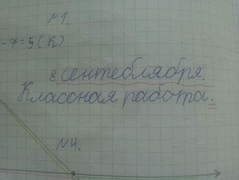 №1.
-4=5(К)
8 сентебляября.
Классная работа.
№4.